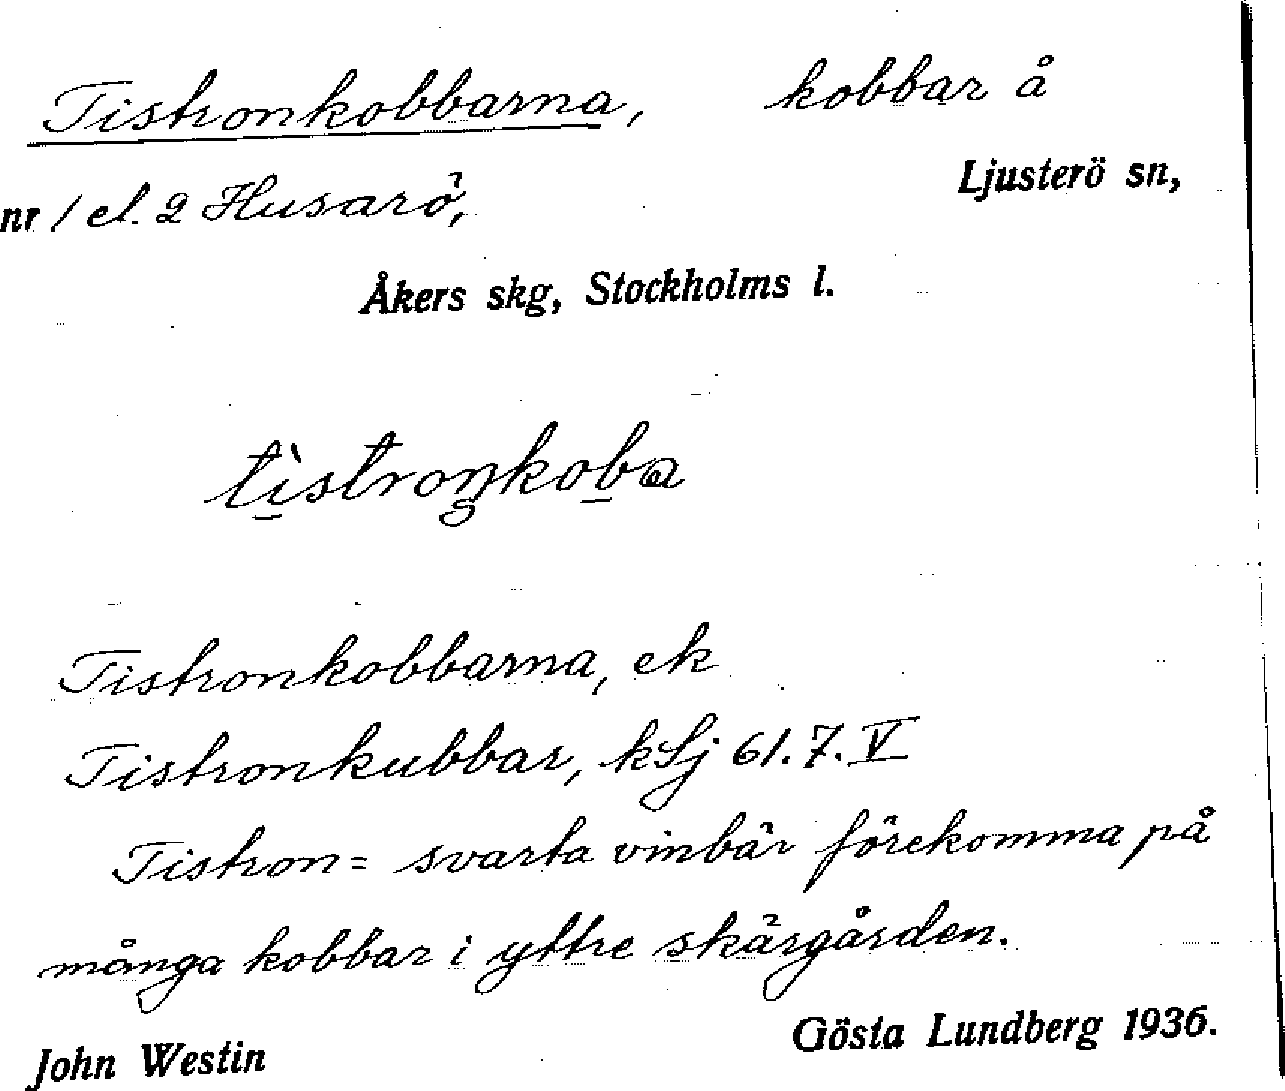 Tistronkobbarna, kobbar å
nr 1 el. 2 Husarö, Ljusterö sn,
Åkers skg, Stockholms l.
tìstroŋkoba
Tistronkobbarna, ek
Tistronkubbar, kSj 61.7.V
Tistron = svarta vinbär förekomma på
många kobbar i yttre skärgården.
John Westin Gösta Lundberg 1936.